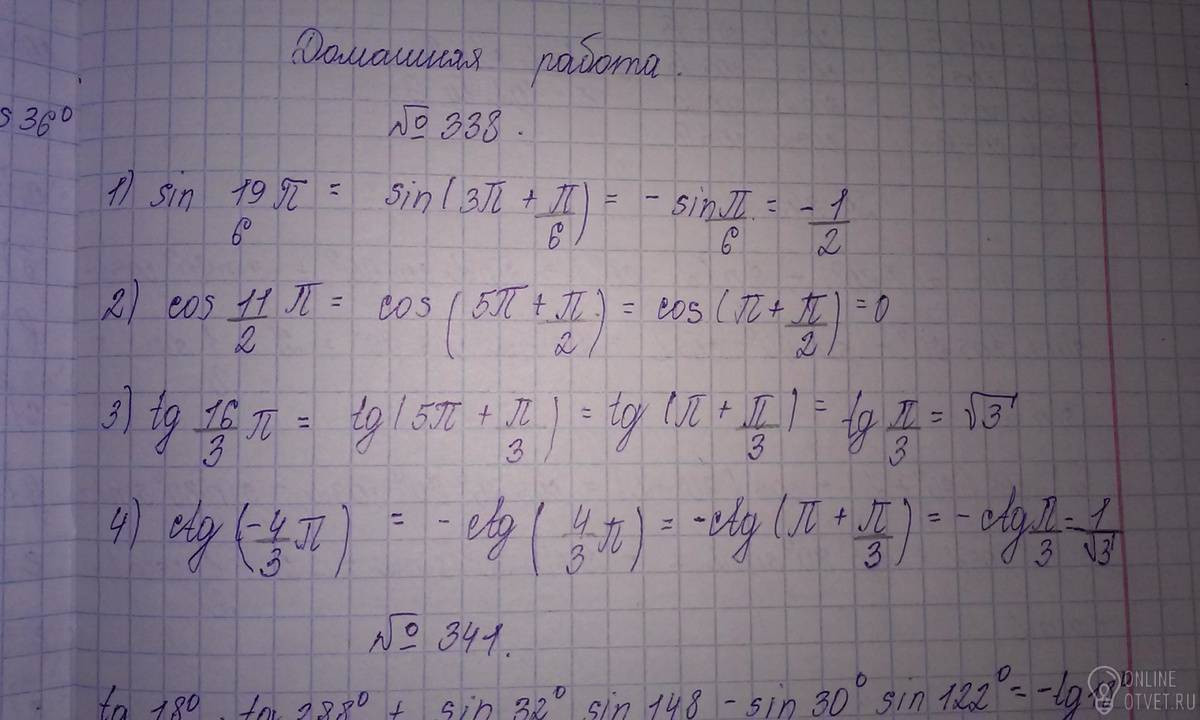 Домашняя работа.
s 36°
№ 338.
1) sin 19/6 π = sin(3π + π/6) = - sin π/6 = - 1/2
2) cos 11/2 π = cos(5π + π/2) = cos(π + π/2) = 0
3) tg 16/3 π = tg(5π + π/3) = tg(π + π/3) = tg π/3 = √3
4) ctg(-4/3 π) = - ctg(4/3 π) = - ctg(π + π/3) = - ctg π/3 = 1/√3
№ 341.
tg 18° · tg 288° + sin 32° sin 148 - sin 30° sin 122° = - tg
ONLINE
OTVET.RU